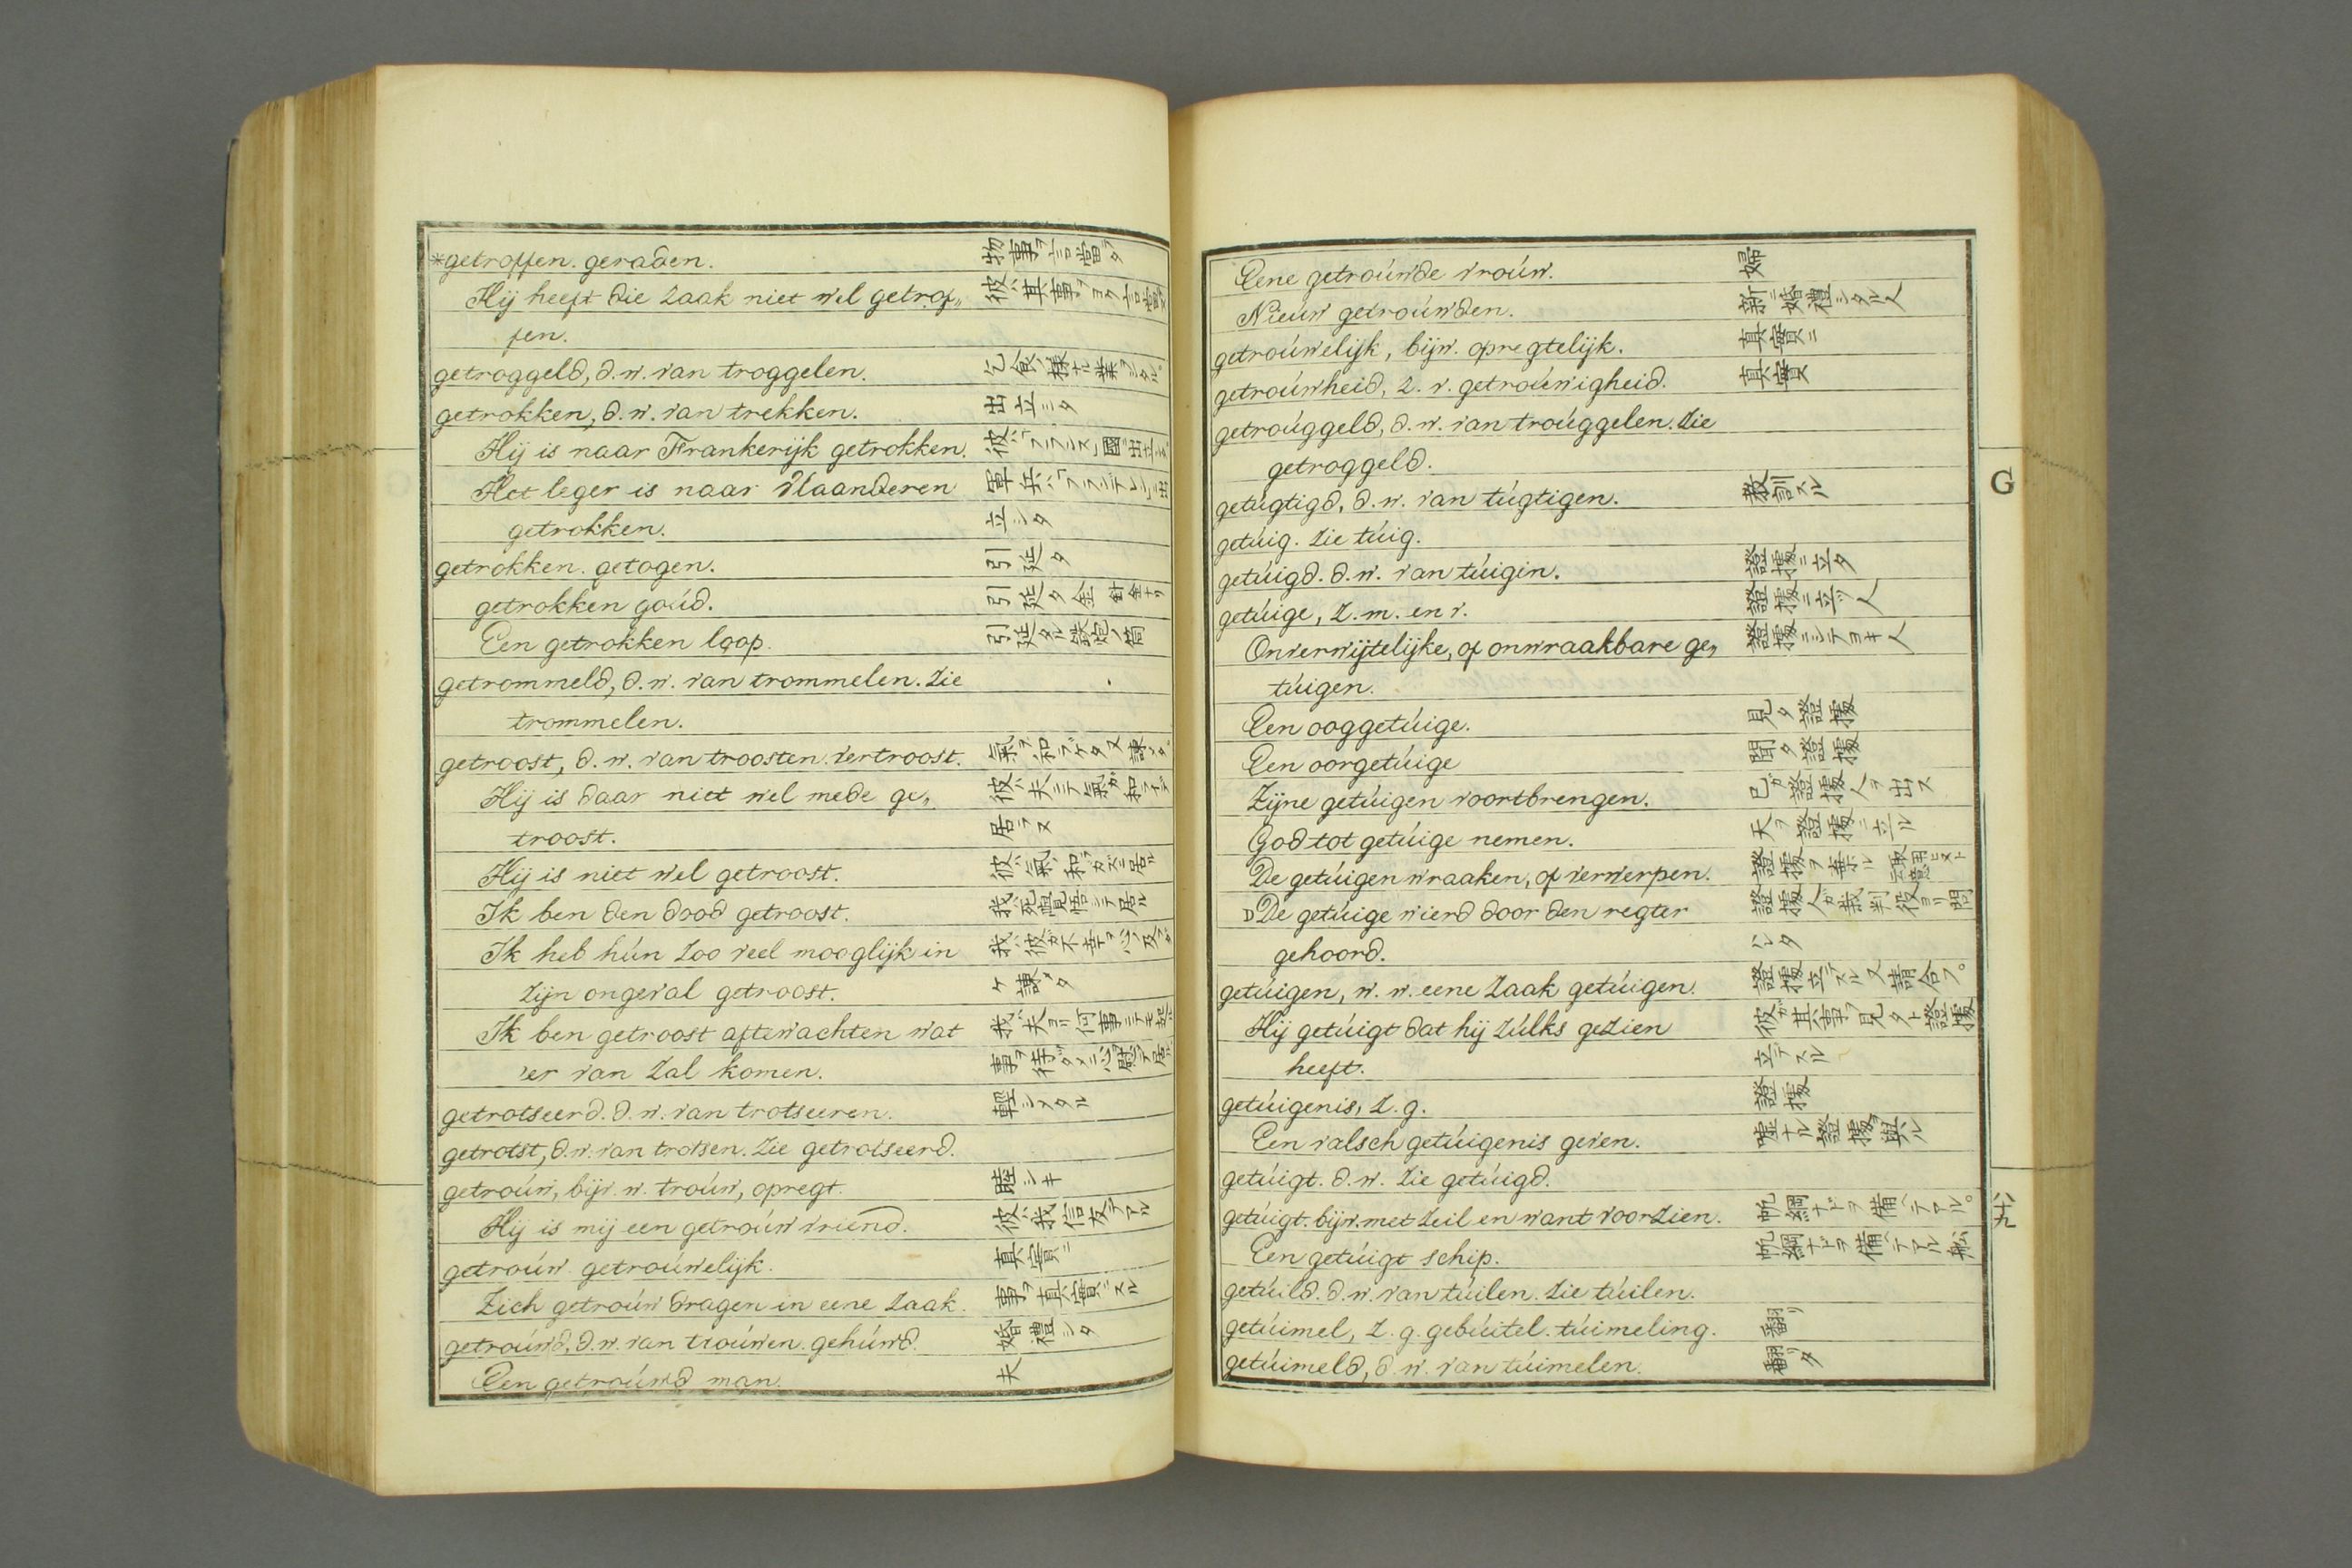 *getroffen. geraden. 物事ヲ言當タ
Hij heeft die zaak niet wel getrof„ 彼ハ其事ヲヨク言當
fen.
getroggeld, d. w. van troggelen. 乞食ノ様ナル業ヲシタル
getrokken, d. w. van trekken. 出立シタ
Hij is naar Frankerijk getrokken. 彼ハフランス國ニ出立シ
Het leger is naar Vlaanderen 軍兵ハフランデレンニ出
getrokken. 立シタ
getrokken. getogen. 引延タ
getrokken goúd. 引延タ金 針金ナリ
Een getrokken loop. 引延タル鉄炮ノ筒
getrommeld, d. w. van trommelen. Zie
trommelen.
getroost, d. w. van troosten. vertroost. 氣ヲ和ラケタ又諫タ
Hij is daar niet wel mede ge„ 彼ハ夫ニテ氣ガ和
troost. 居ラヌ
Hij is niet wel getroost. 彼ハ氣ノ和ラガズニ居ル
Ik ben den dood getroost. 我ハ死ノ覺悟シテ居ル
Ik heb hún zoo veel mooglijk in 我ハ彼ガ不幸ヲ心ノ及
zijn ongeval getroost. ケ諫メタ
Ik ben getroost aftewachten wat 我ハ夫ヨリ何事ニテモ起ル
'er van zal komen. 事ヲ待ツタメニ心ヲ慰シテ居ル
getrotseerd. d. w. van trotseeren. 輕シメタル
getrotst, d. w. van trotsen. Zie getrotseerd.
getroúw, bijv. w. troúw, opregt. 睦シキ
Hij is mij een getroúw vriend. 彼ハ我信友デアル
getroúw. getroúwelijk. 真實ニ
Zich getroúw dragen in eene zaak. 事ヲ真實ニスル
getroúwd, d. w. van troúwen. gehúwd. 婚禮シタ
Een getroúwd man. 夫
Eene getroúwde vroúw. 婦
Nieúw getroúwden. 新ニ婚禮シタル人
getroúwelijk, bijw. opregtelijk. 真實ニ
getroúwheid, z. v. getroúwigheid. 真實
getroúggeld, d. w. van troúggelen. Zie
getroggeld.
getúgtigd, d. w. van túgtigen. 教訓スル
getúig. Zie túig.
getúigd. d. w. van túigin. 證據ニ立タ
getúige, z. m. en v. 證據ニ立ツ人
Onverwijtelijke, of onwraakbare ge„ 證據ニシテヨキ人
túigen.
Een ooggetúige. 見タ證據
Een oorgetúige 聞タ證據
Zijne getúigen voortbrengen. 己ガ證據人ヲ出ス
God tot getúige nemen. 天ヲ證據ニ立ル
De getúigen wraaken, of verwerpen. 證據ヲ棄ル
De getúige wierd door den regter 證據人ガ裁判役ヨリ問
gehoord. ハレタ
getúigen, w. w. eene zaak getúigen. 證據立テスル又請合フ。
Hij getúigt dat hij zúlks gezien 彼ガ其事ヲ見タト證據
heeft. 立テスル
getúigenis, z. g. 證據
Een valsch getúigenis geven. 嘘ナル證據ヲ與ル
getúigt. d. w. Zie getúigd.
getúigt. bijw. met zeil en want voorzien. 帆綱ナドヲ備ヘテアル。
Een getúigt schip. 帆綱ナドヲ備ヘテアル舩
getúild. d. w. van túilen. Zie túilen.
getúimel, z. g. gebúitel. túimeling. 翻リ
getúimeld, d. w. van túimelen. 翻リタ
G
八十九